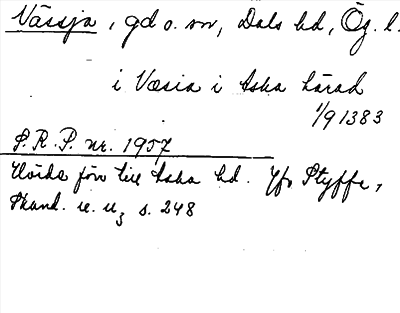 Vässja, gd o. sn, Dals hd, Ög. l.
i Væsia i Aska härad
1/9 1383
S.R.P. nr. 1957
Hörde förr till Aska hd. Jfr Styffe,
Skand. u. U₃ s. 248